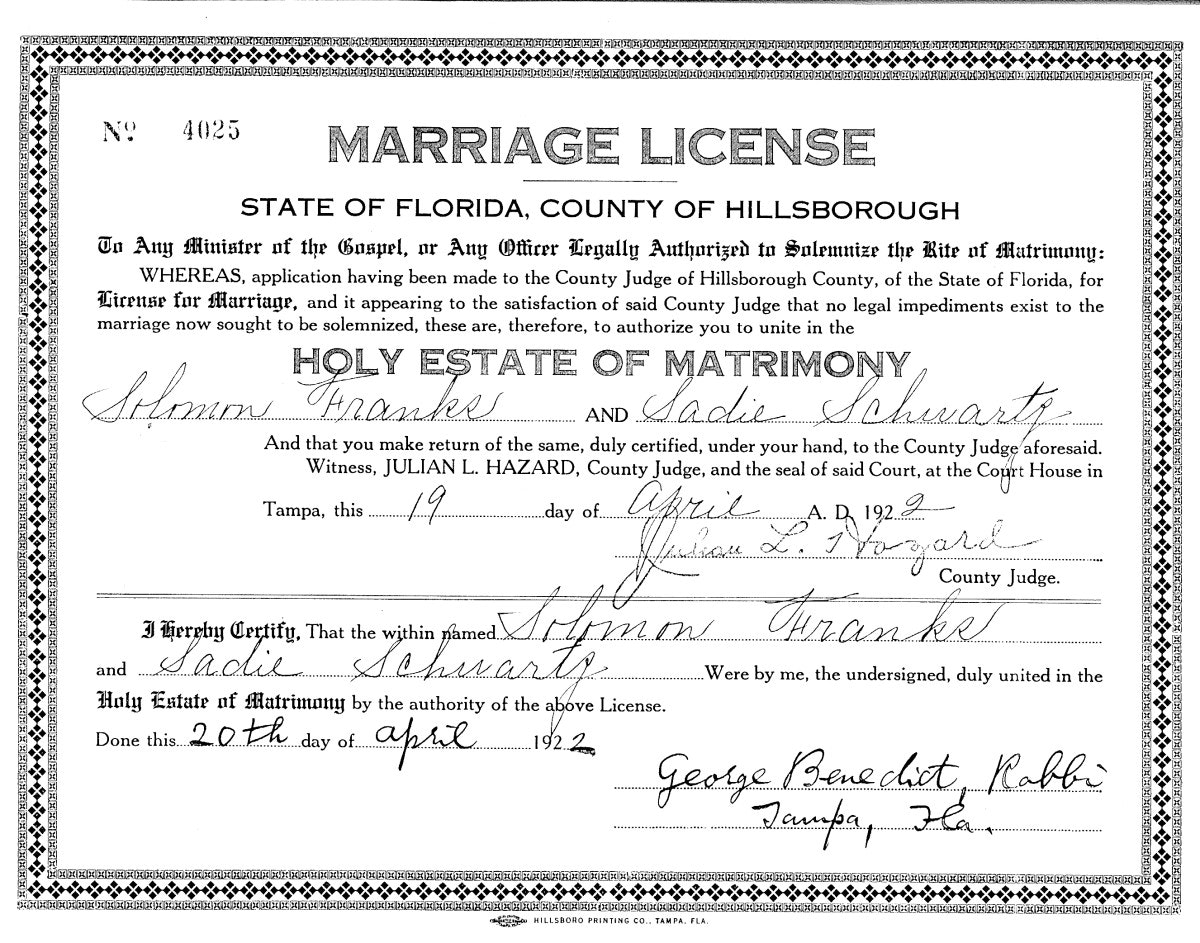 Nº 4025
MARRIAGE LICENSE
STATE OF FLORIDA, COUNTY OF HILLSBOROUGH
To Any Minister of the Gospel, or Any Officer Legally Authorized to Solemnize the Rite of Matrimony:
WHEREAS, application having been made to the County Judge of Hillsborough County, of the State of Florida, for
License for Marriage, and it appearing to the satisfaction of said County Judge that no legal impediments exist to the
marriage now sought to be solemnized, these are, therefore, to authorize you to unite in the
HOLY ESTATE OF MATRIMONY
Solomon Franks AND Sadie Schwartz
And that you make return of the same, duly certified, under your hand, to the County Judge aforesaid.
Witness, JULIAN L. HAZARD, County Judge, and the seal of said Court, at the Court House in
Tampa, this 19 day of April A. D. 1922
Julian L. Hazard
County Judge.
I Hereby Certify, That the within named Solomon Franks
and Sadie Schwartz Were by me, the undersigned, duly united in the
Holy Estate of Matrimony by the authority of the above License.
Done this 20th day of april 1922
George Benedict, Rabbi
Tampa, Fla.
HILLSBORO PRINTING CO., TAMPA, FLA.